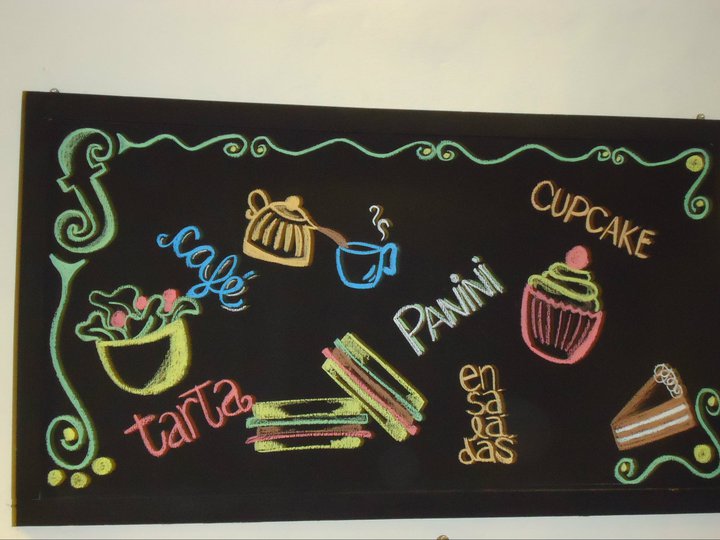 café
CUPCAKE
PANINI
tarta
en
sa
la
das